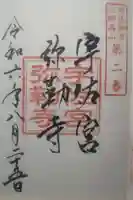 第二番
宇佐宮
弥勒寺
令和六年八月二十五日